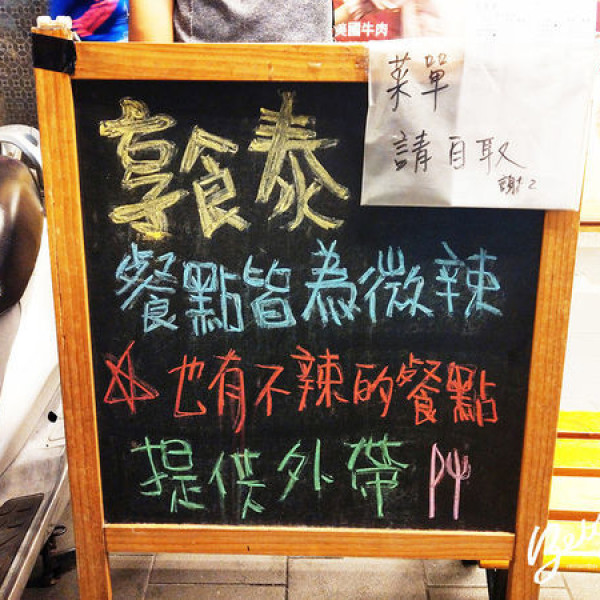 美國牛肉
菜單
請自取
謝2
享食泰
餐點皆為微辣
☆也有不辣的餐點
提供外帶